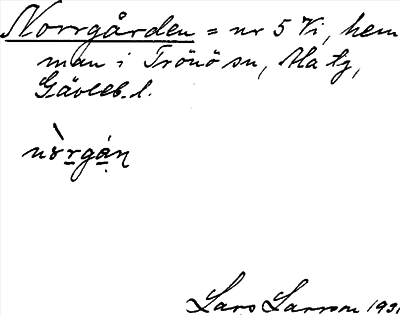 Norrgården = nr 5 Vi, hem
man i Trönö sn, Ha tg,
Gävleb. l.
nòrgán
Lars Larsson 1931